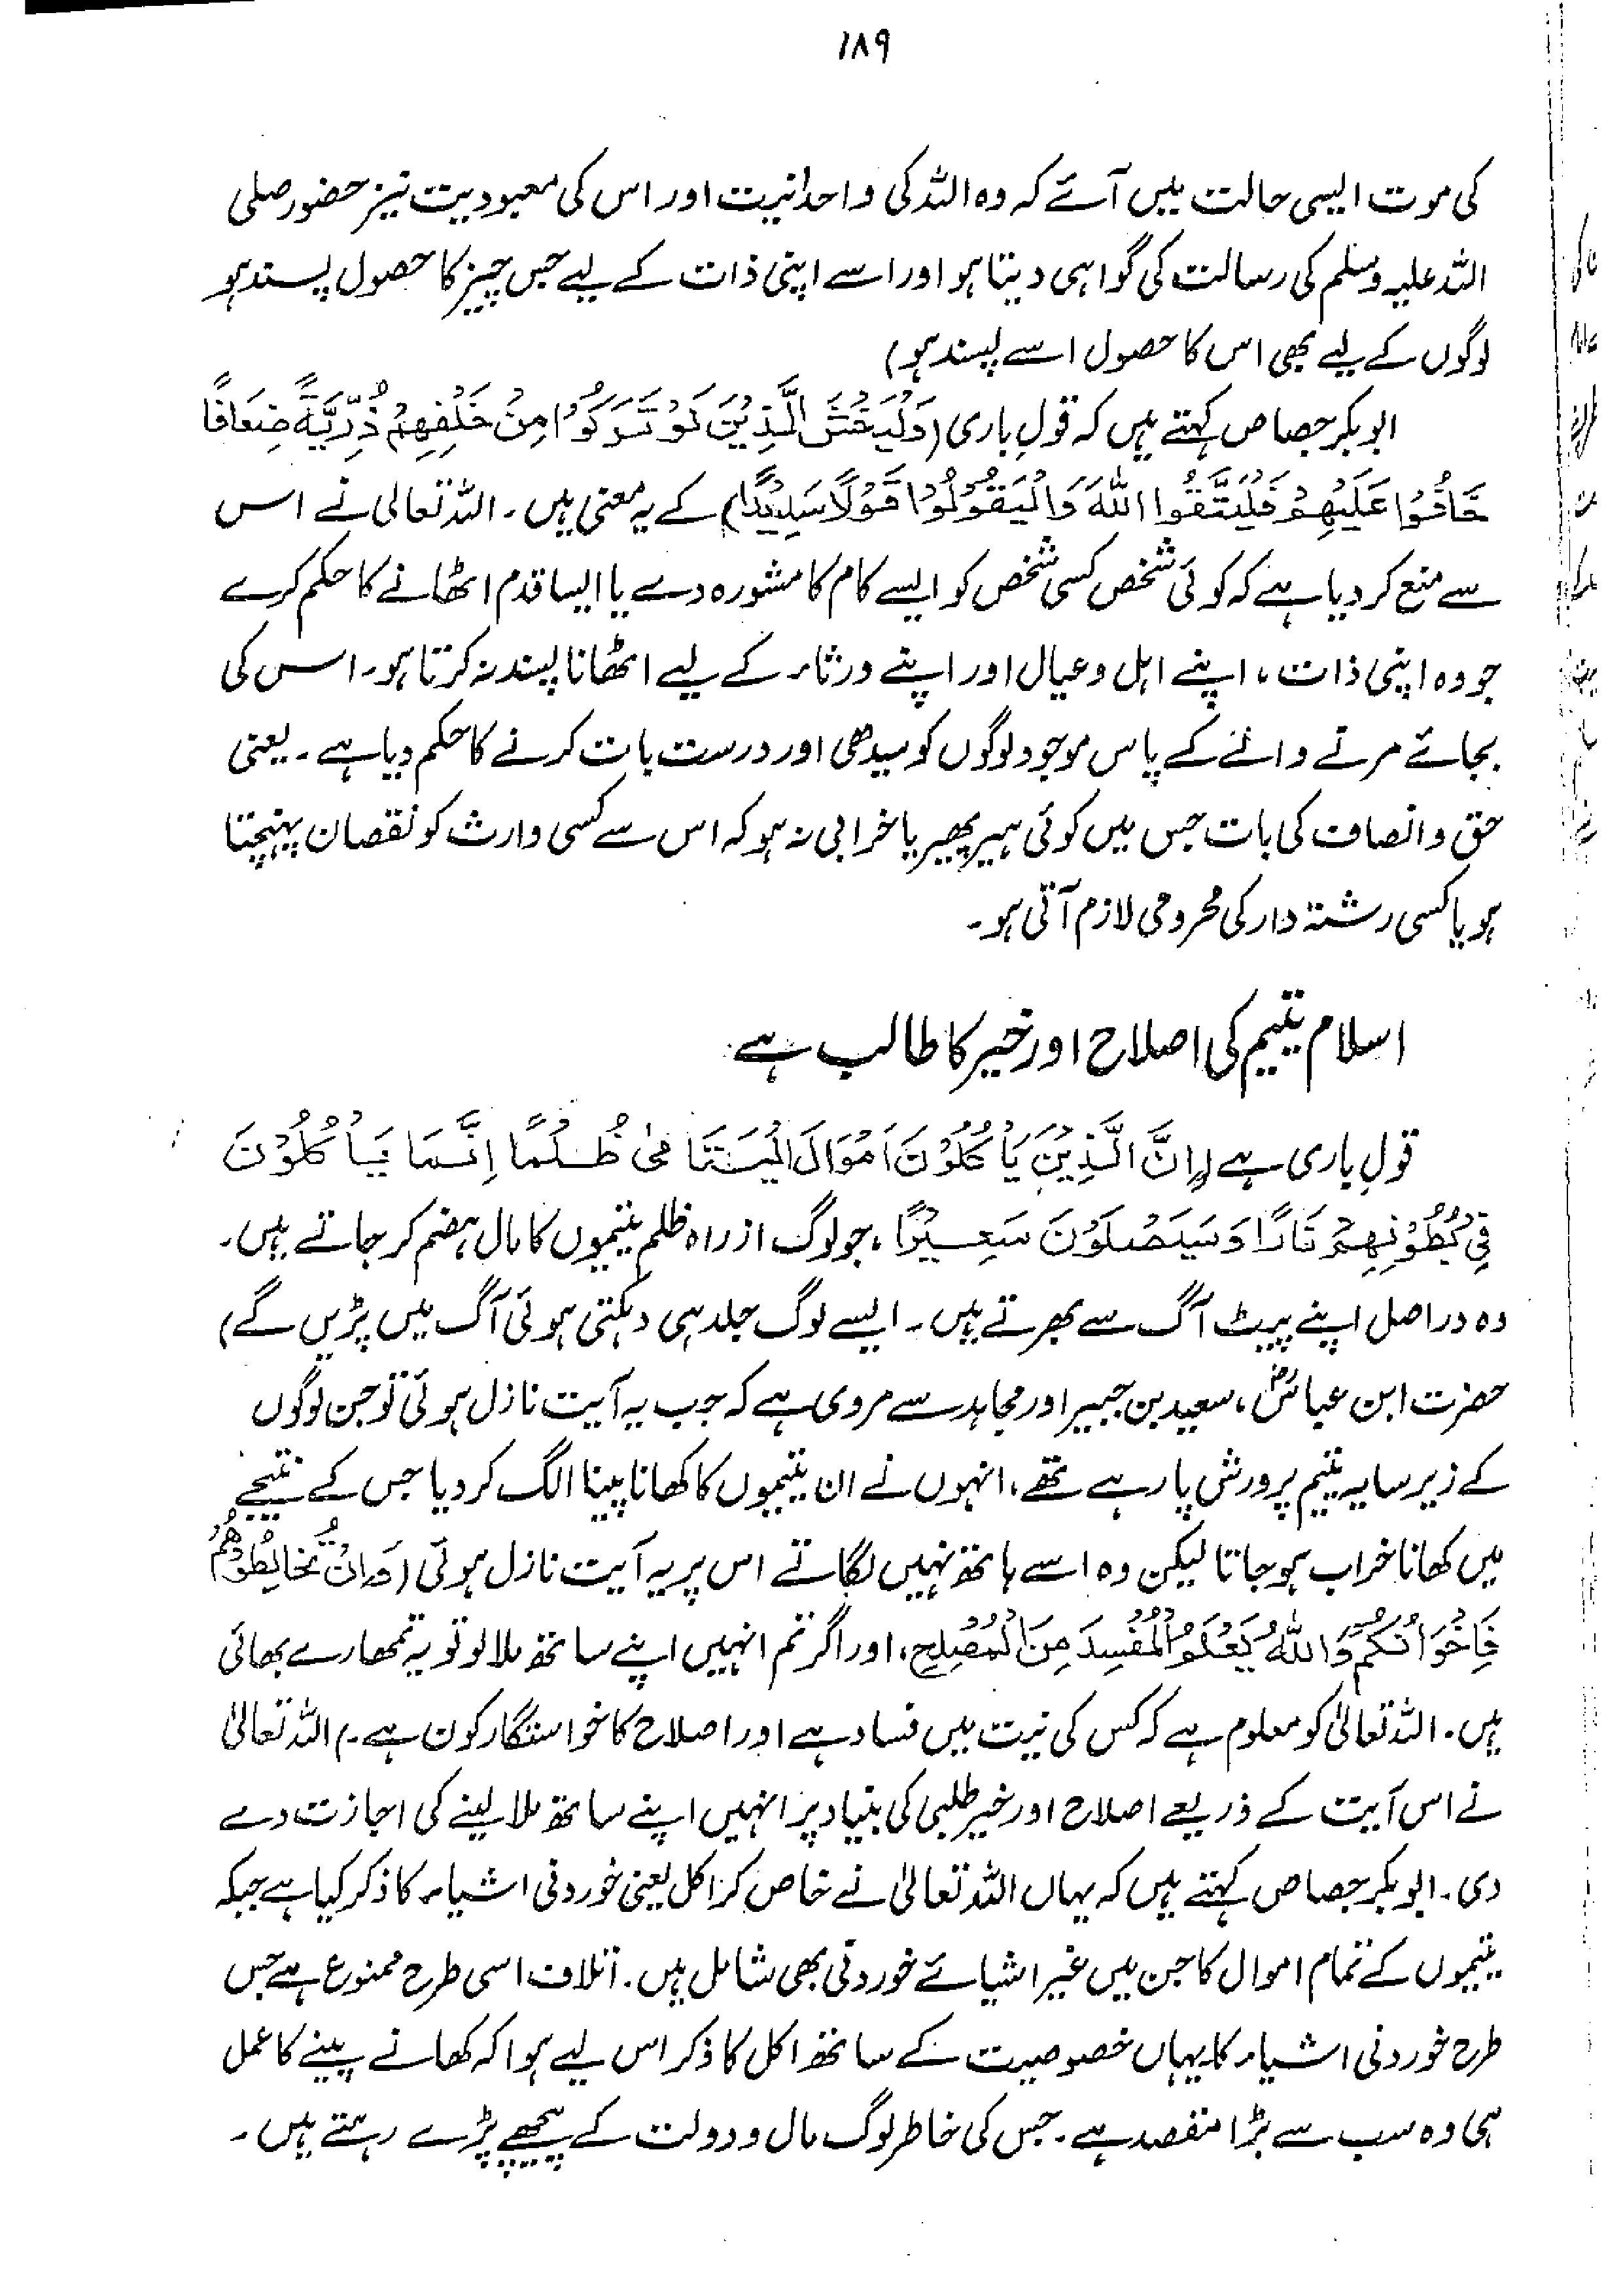 ۱۸۹
کی موت ایسی حالت میں آئے کہ وہ اللہ کی واحدانیت اور اس کی معبودیت نیز حضور صلی
اللہ علیہ وسلم کی رسالت کی گواہی دیتا ہو اور اسے اپنی ذات کے لیے جس چیز کا حصول پسند ہو
لوگوں کے لیے بھی اس کا حصول اسے پسند ہو)
ابوبکر جصاص کہتے ہیں کہ قولِ باری (وَلْيَخْشَ الَّذِيْنَ لَوْ تَرَكُوْا مِنْ خَلْفِهِمْ ذُرِّيَّةً ضِعَافًا
خَافُوْا عَلَيْهِمْ فَلْيَتَّقُوا اللهَ وَالْيَقُوْلُوْا قَوْلًا سَدِيْدًا) کے یہ معنی ہیں۔ اللہ تعالی نے اس
سے منع کر دیا ہے کہ کوئی شخص کسی شخص کو ایسے کام کا مشورہ دے یا ایسا قدم اٹھانے کا حکم کرے
جو وہ اپنی ذات، اپنے اہل و عیال اور اپنے ورثاء کے لیے اٹھانا پسند نہ کرتا ہو۔ اس کی
بجائے مرنے والے کے پاس موجود لوگوں کو سیدھی اور درست بات کرنے کا حکم دیا ہے۔ یعنی
حق و انصاف کی بات جس میں کوئی ہیر پھیر یا خرابی نہ ہو کہ اس سے کسی وارث کو نقصان پہنچتا
ہو یا کسی رشتہ دار کی محرومی لازم آتی ہو۔
اسلام یتیم کی اصلاح اور خیر کا طالب ہے
قولِ باری ہے (اِنَّ الَّذِيْنَ يَاْكُلُوْنَ اَمْوَالَ الْيَتَامٰى ظُلْمًا اِنَّمَا يَاْكُلُوْنَ
فِيْ بُطُوْنِهِمْ نَارًا وَسَيَصْلَوْنَ سَعِيْرًا، جو لوگ از راہ ظلم یتیموں کا مال ہضم کر جاتے ہیں۔
وہ دراصل اپنے پیٹ آگ سے بھرتے ہیں۔ ایسے لوگ جلد ہی دہکتی ہوئی آگ میں پڑیں گے)
حضرت ابن عباسؓ، سعید بن جبیر اور مجاہد سے مروی ہے کہ جب یہ آیت نازل ہوئی تو جن لوگوں
کے زیر سایہ یتیم پرورش پا رہے تھے، انہوں نے ان یتیموں کا کھانا پینا الگ کر دیا جس کے نتیجے
میں کھانا خراب ہو جاتا لیکن وہ اسے ہاتھ نہیں لگاتے اس پر یہ آیت نازل ہوئی (وَاِنْ تُخَالِطُوْهُمْ
فَاِخْوَانُكُمْ وَاللهُ يَعْلَمُ الْمُفْسِدَ مِنَ الْمُصْلِحِ، اور اگر تم انہیں اپنے ساتھ ملا لو تو یہ تمھارے بھائی
ہیں۔ اللہ تعالیٰ کو معلوم ہے کہ کس کی نیت میں فساد ہے اور اصلاح کا خواستگار کون ہے۔) اللہ تعالیٰ
نے اس آیت کے ذریعے اصلاح اور خیر طلبی کی بنیاد پر انہیں اپنے ساتھ ملا لینے کی اجازت دے
دی۔ ابوبکر جصاص کہتے ہیں کہ یہاں اللہ تعالیٰ نے خاص کر اکل یعنی خوردنی اشیاء کا ذکر کیا ہے جبکہ
یتیموں کے تمام اموال کا جن میں غیر اشیائے خوردنی بھی شامل ہیں۔ اتلاف اسی طرح ممنوع ہے جس
طرح خوردنی اشیاء کا یہاں خصوصیت کے ساتھ اکل کا ذکر اس لیے ہوا کہ کھانے پینے کا عمل
ہی وہ سب سے بڑا مقصد ہے۔ جس کی خاطر لوگ مال و دولت کے پیچھے پڑے رہتے ہیں۔